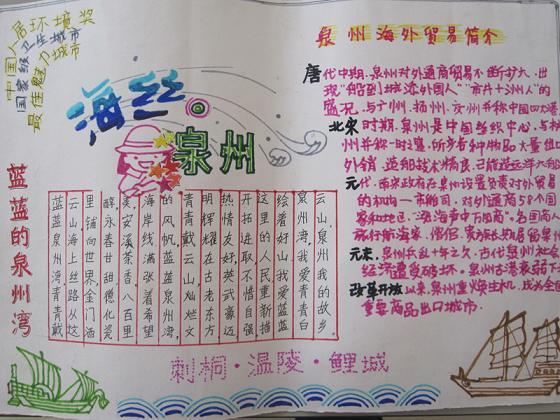 中国人居环境奖
国家级卫生城市
最佳魅力城市
海丝
泉州
蓝蓝的泉州湾
云山泉州我的故乡,
泉州湾,我爱青青白
绘着好山我爱蓝蓝
这里的人民重新描
开拓进取不惜自强
热情友好英武豪迈
明辉耀在古老东方
青青戴云山灿烂文
的风帆,蓝蓝泉州湾,
海岸线满张着希望
美,安溪茶香,八百里
醇永春甘甜德化瓷
里铺向世界,金门酒
云山海上丝路从这
蓝蓝泉州湾,青青戴
刺桐·温陵·鲤城
泉州海外贸易简介
唐代中期,泉州对外通商贸易不断扩大,出
现"船到城添外国人""市井十洲人"的
盛况,与广州、扬州、交州并称中国四大
北宋时期,泉州是中国纺织中心,与杭
州并称一时之
外销,造船技术精良,已能造远洋大
元代,南宋政府在泉州设置负责对外贸易
的机构—市舶司,对外通商58个国
家和地区,
旅行航海家、僧侣、贵族长期居留泉州
元末,泉州兵乱十年之久,古代泉州社会
经济遭受破坏,泉州古港衰弱下
改革开放以来,泉州重焕生机,成为全国
重要商品出口城市.